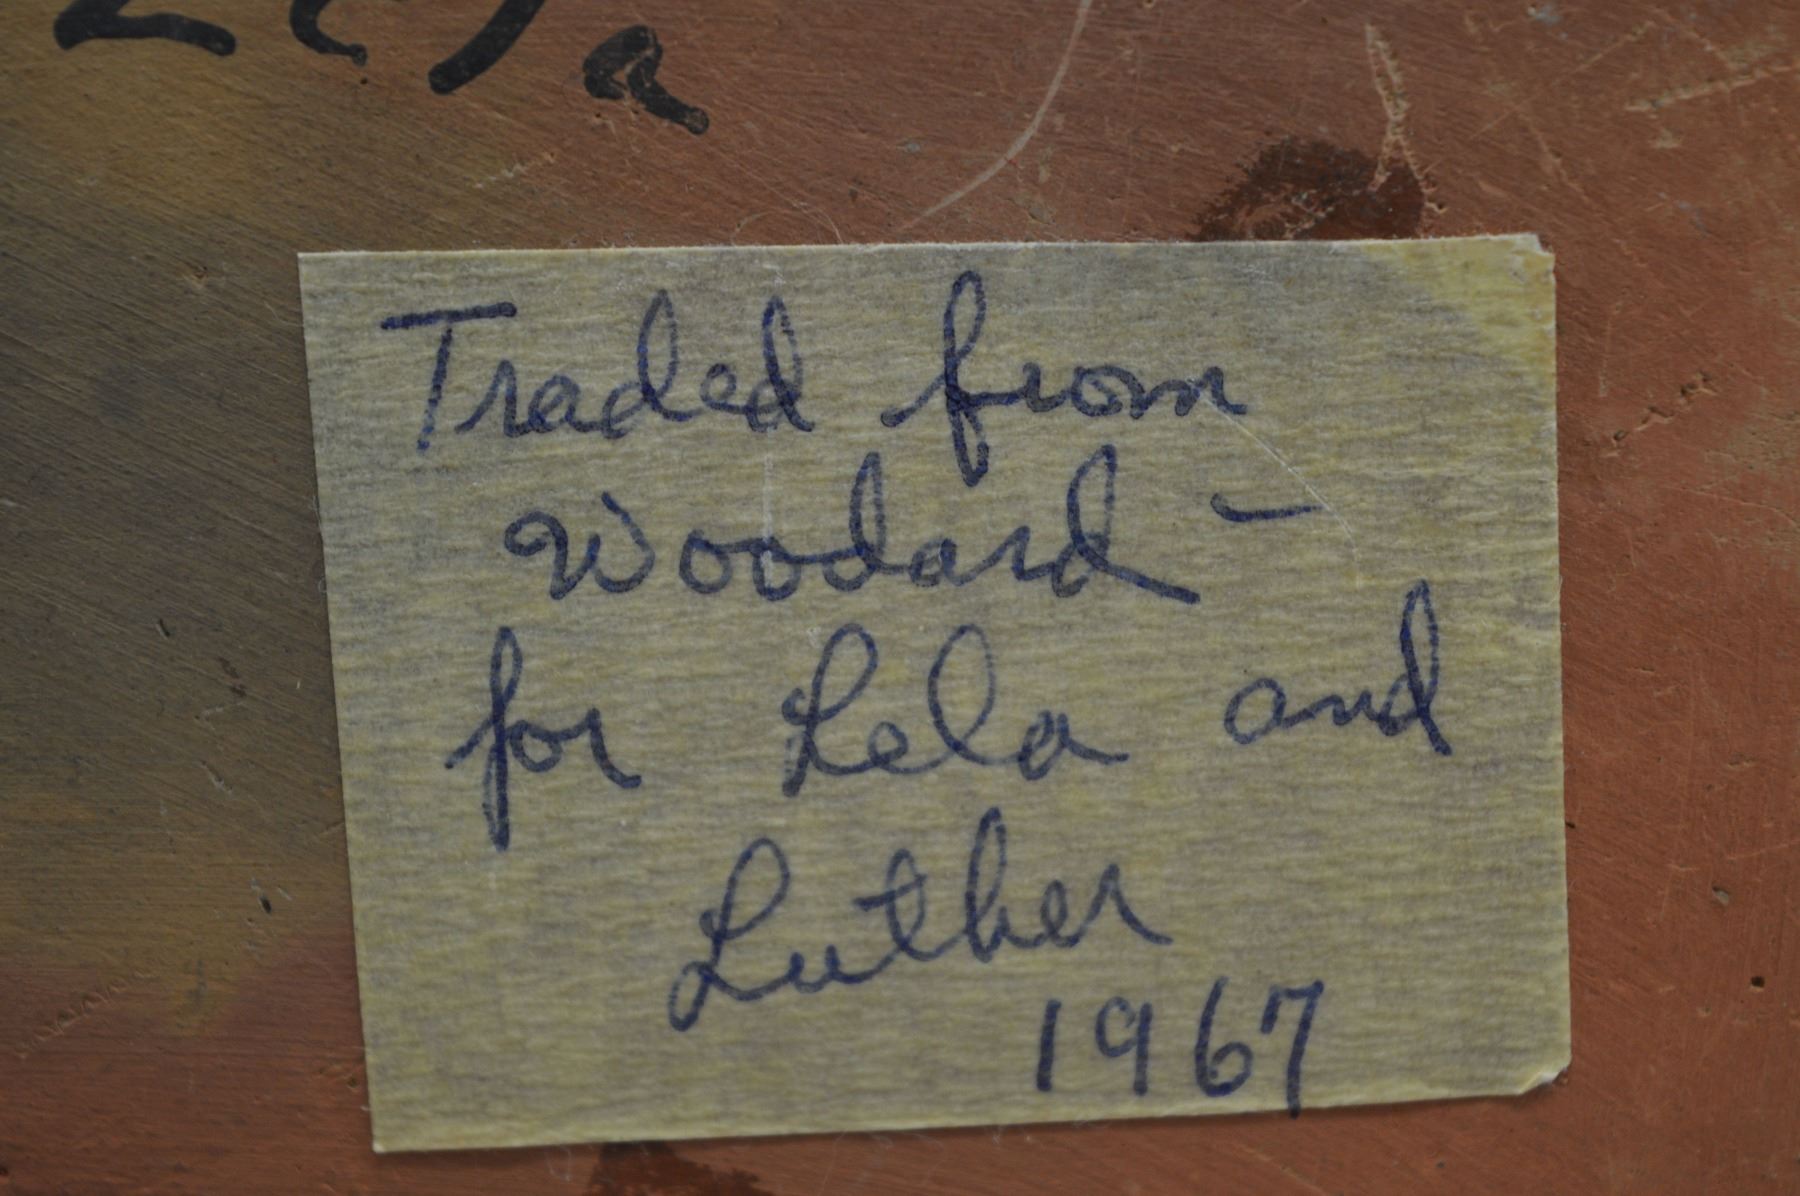 Traded from
Woodard –
for Lela and
Luther
1967